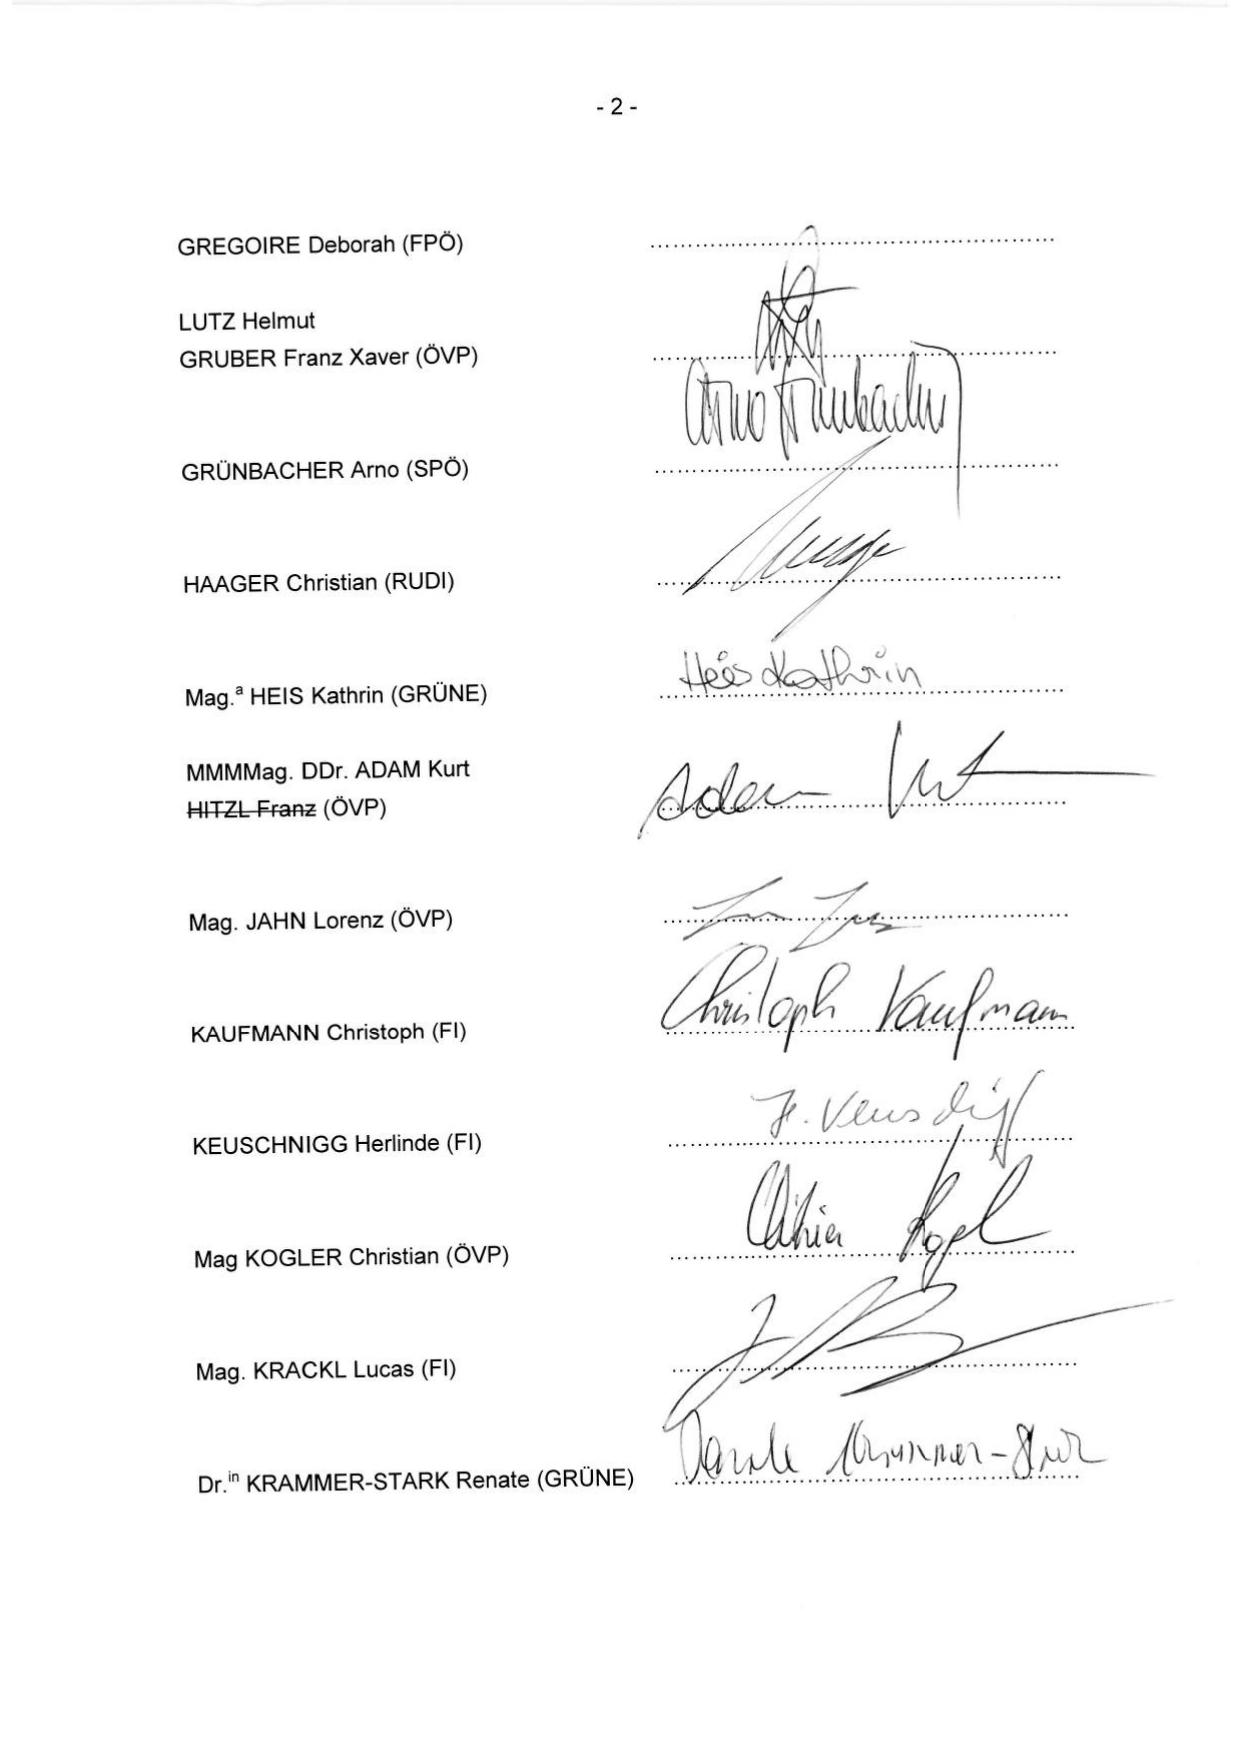 - 2 -
GREGOIRE Deborah (FPÖ)
LUTZ Helmut
GRUBER Franz Xaver (ÖVP)
Arno Grünbacher
GRÜNBACHER Arno (SPÖ)
HAAGER Christian (RUDI)
Heis Kathrin
Mag.ª HEIS Kathrin (GRÜNE)
MMMMag. DDr. ADAM Kurt
Adam Kurt
HITZL Franz (ÖVP)
Mag. JAHN Lorenz (ÖVP)
Christoph Kaufmann
KAUFMANN Christoph (FI)
KEUSCHNIGG Herlinde (FI)
Mag KOGLER Christian (ÖVP)
Mag. KRACKL Lucas (FI)
Renate Krammer-Stark
Dr.ⁱⁿ KRAMMER-STARK Renate (GRÜNE)